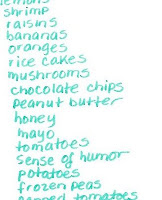 lemons
shrimp
raisins
bananas
oranges
rice cakes
mushrooms
chocolate chips
peanut butter
honey
mayo
tomatoes
sense of humor
potatoes
frozen peas
canned tomatoes